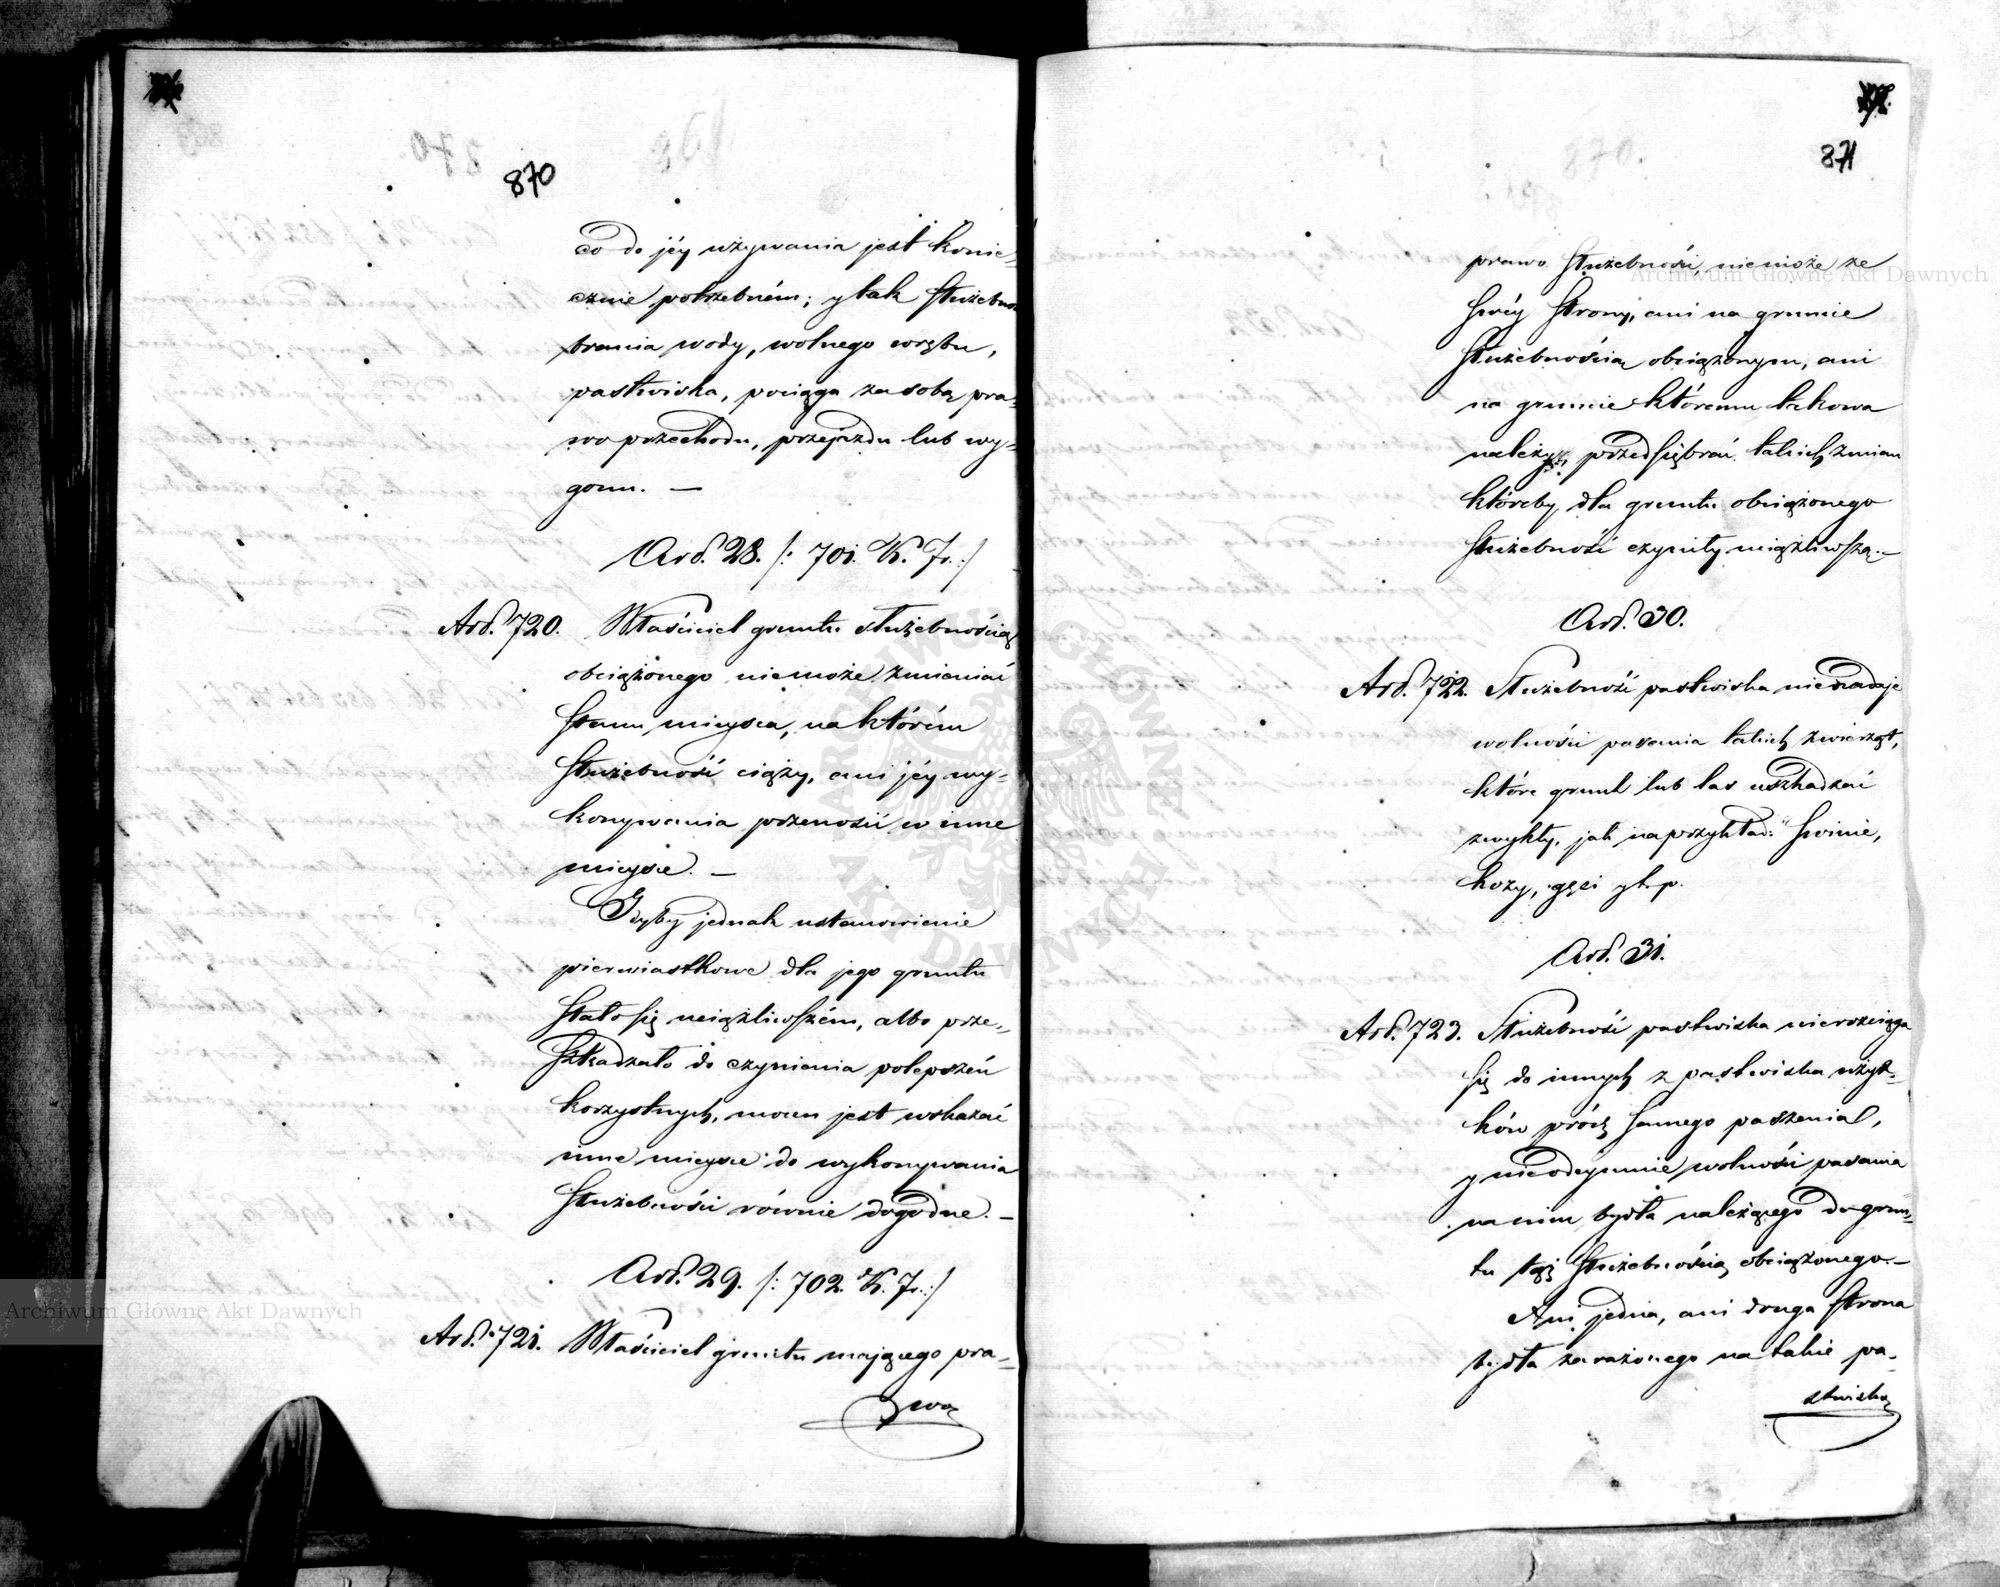 870
co do jéy używania jest konie-
cznie potrzebném; y tak służebność
brania wody, wolnego wrębu,
pastwiska, pociąga za sobą pra-
wo przechodu, przejazdu lub wy-
gonu. —
Art. 28. /: 701. K. Fr. :/
Art. 720. Właściciel gruntu służebnością
obciążonego niemoże zmieniać
stanu mieysca, na którém
służebność ciąży, ani jéy wy-
konywania przenosić w inne
mieysce. —
Gdyby jednak ustanowienie
pierwiastkowe dla jego gruntu
stało się uciążliwszém, albo prze-
szkadzało do czynienia polepszeń
korzystnych, mocen jest wskazać
inne mieysce do wykonywania
służebności równie dogodne. —
Art. 29. /: 702. K. Fr. :/
Art. 721. Właściciel gruntu mającego pra-
wo
871
prawo służebności, niemoże ze
swéy strony, ani na gruncie
służebnością obciążonym, ani
na gruncie któremu takowa
należy, przedsiębrać takich zmian
któreby dla gruntu obciążonego
służebność czyniły uciążliwszą. —
Art. 30.
Art. 722. Służebność pastwiska nienadaje
wolności pasania takich zwierząt,
które grunt lub las uszkadzać
zwykły, jak naprzykład: świnie,
kozy, gęsi y t. p.
Art. 31.
Art. 723. Służebność pastwiska nierozciąga
się do innych z pastwiska użyt-
ków prócz samego paszenia,
y nieodeymuie wolności pasania
na nim bydła należącego do grun-
tu tąż służebnością obciążonego. —
Ani jedna, ani druga strona
bydła zarażonego na takie pa-
stwiska
Archiwum Główne Akt Dawnych
Archiwum Główne Akt Dawnych
ARCHIWUM GŁÓWNE AKT DAWNYCH